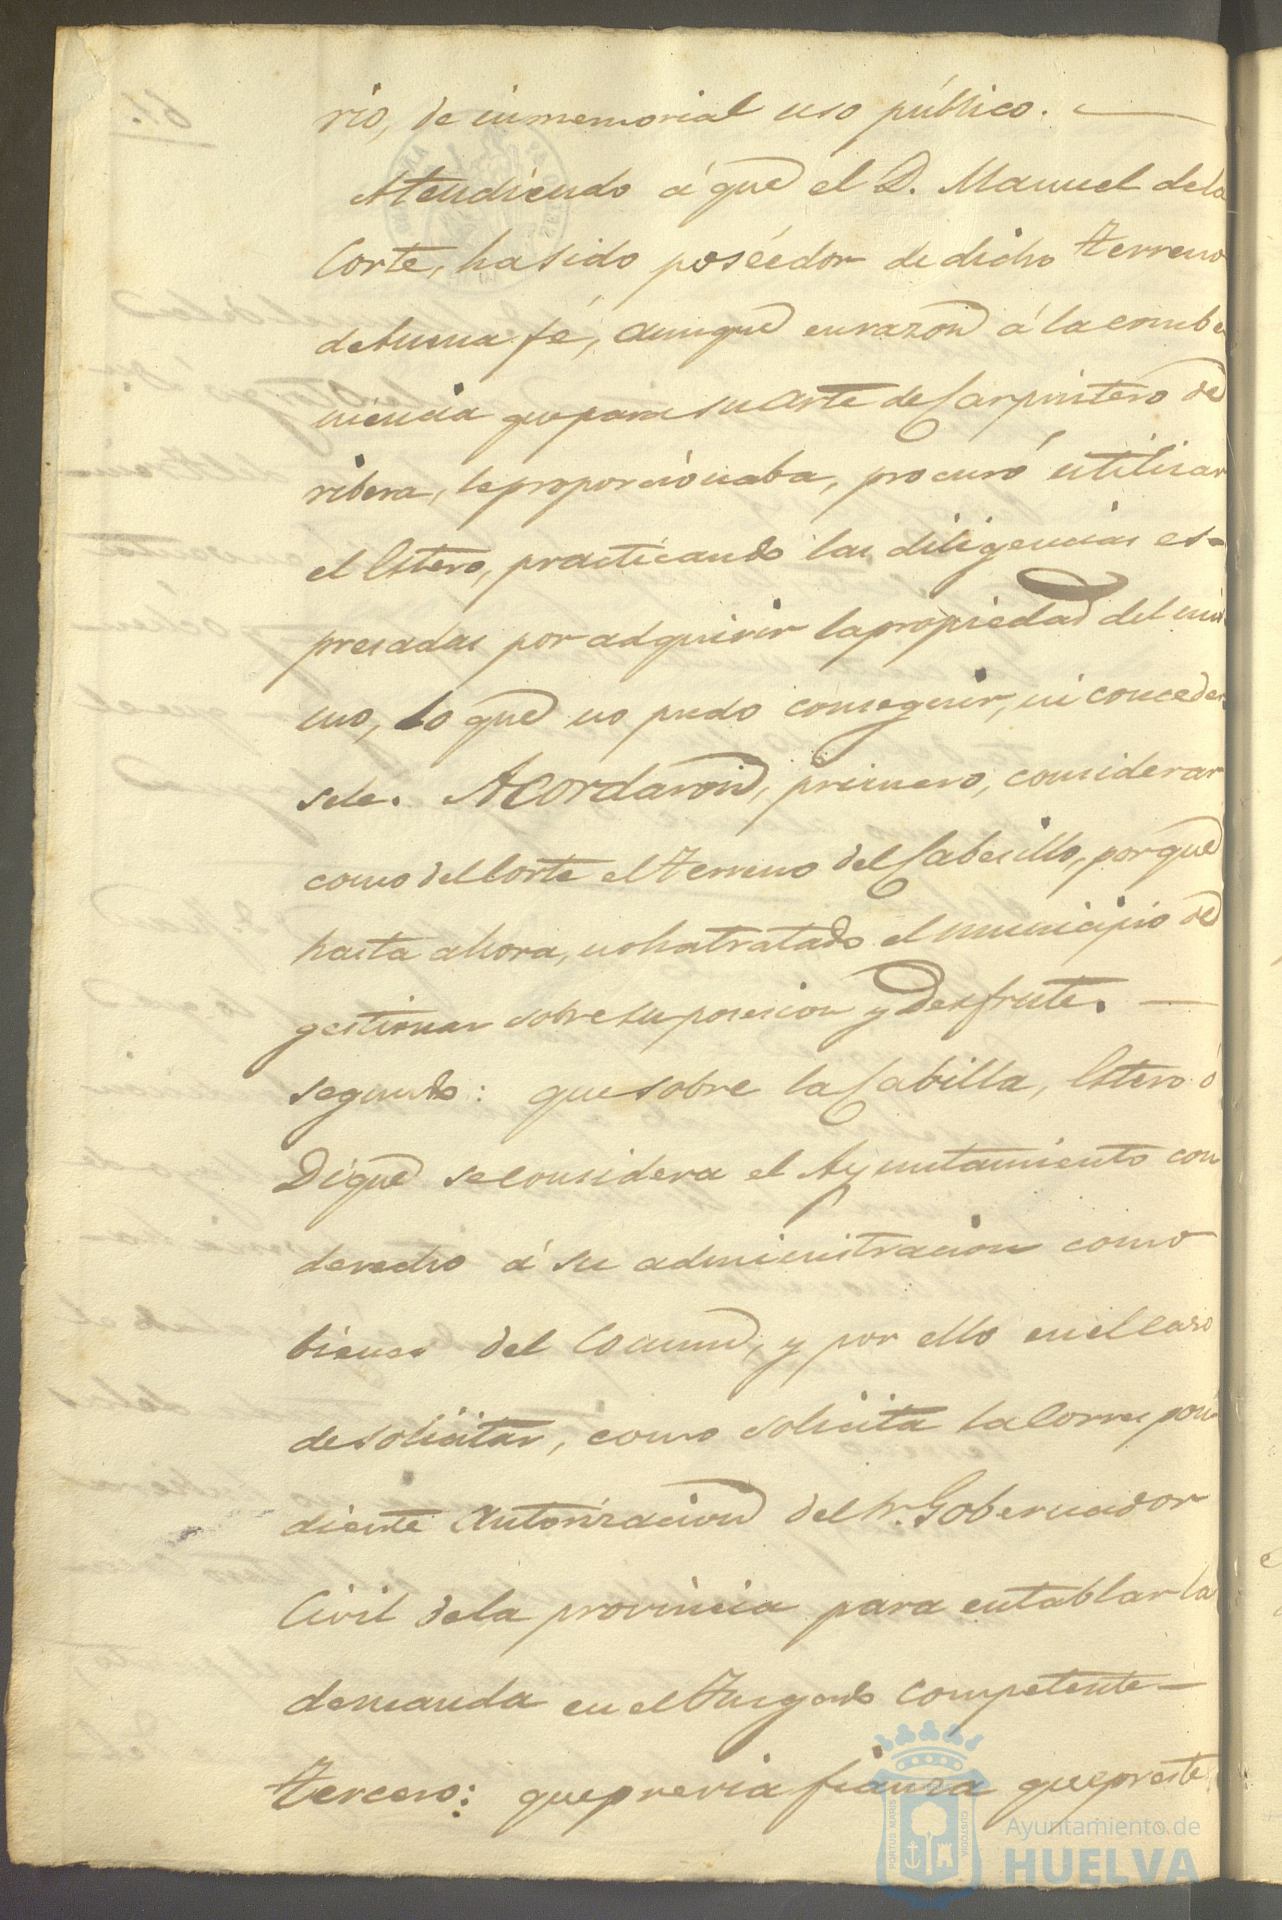 rio, de inmemorial uso público. —
Atendiendo á que el D. Manuel dela
Corte, ha sido poséedor de dicho terreno
debuena fé, aunque enrazon á la combe
niencia quepara su arte de Carpintero de
ribera, leproporcionaba, procuró utilisar
el Estero, practicando las diligencias es-
presadas por adquirir lapropiedad del mis
mo, lo que no pudo conseguir, ni conceder
sele. Acordaron, primero, considerar
como del Corte el terreno del Cabesillo, porque
hasta ahora, nohatratado el municipio de
gestionar sobre su posesion y desfrute. —
segundo: que sobre la Cabilla, Estero ó
Dique se considera el Ayuntamiento con
derecho á su administracion como
bienes del Comun, y por ello en el caso
de solicitar, como solicita la Correspon
diente autorizacion del Sr. Gobernador
Civil dela provincia para entablar la
demanda en el Jusgado competente —
tercero: queprevia fianza que preste
Ayuntamiento de
HUELVA
PORTUS MARIS